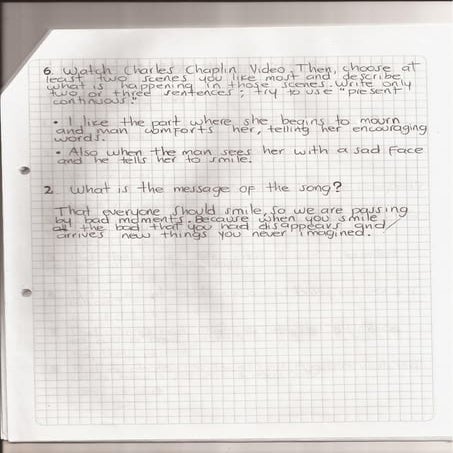 6. Watch Charles Chaplin Video. Then, choose at
least two scenes you like most and describe
what is happening in those scenes. Write only
two or three sentences; try to use "present
continuous."
• I like the part where she begins to mourn
and man comforts her, telling her encouraging
words.
• Also when the man sees her with a sad face
and he tells her to smile.
2. What is the message of the song?
That everyone should smile, so we are passing
by bad moments. Because when you smile
all the bad that you had disappears and
arrives new things you never imagined.